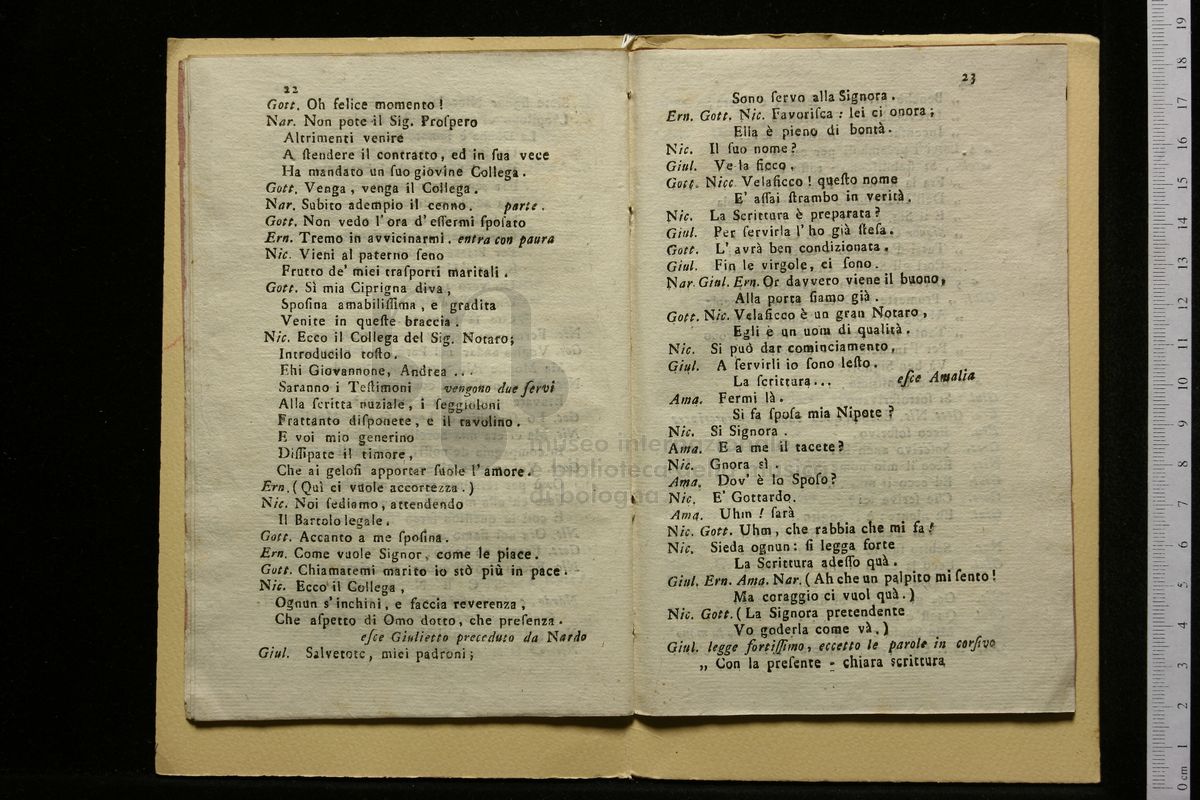 22
Gott. Oh felice momento!
Nar. Non pote il Sig. Proſpero
Altrimenti venire
A ſtendere il contratto, ed in ſua vece
Ha mandato un ſuo giovine Collega.
Gott. Venga, venga il Collega.
Nar. Subito adempio il cenno. parte.
Gott. Non vedo l'ora d'eſſermi ſpoſato
Ern. Tremo in avvicinarmi. entra con paura
Nic. Vieni al paterno ſeno
Frutto de' miei traſporti maritali.
Gott. Sì mia Ciprigna diva,
Spoſina amabiliſſima, e gradita
Venite in queſte braccia.
Nic. Ecco il Collega del Sig. Notaro;
Introducilo toſto.
Ehi Giovannone, Andrea ...
Saranno i Teſtimoni vengono due ſervi
Alla ſcritta nuziale, i ſeggioloni
Frattanto diſponete, e il tavolino.
E voi mio generino
Diſſipate il timore,
Che ai geloſi apportar ſuole l'amore.
Ern. (Quì ci vuole accortezza.)
Nic. Noi ſediamo, attendendo
Il Bartolo legale.
Gott. Accanto a me ſpoſina.
Ern. Come vuole Signor, come le piace.
Gott. Chiamatemi marito io stò più in pace.
Nic. Ecco il Collega,
Ognun s'inchini, e faccia reverenza,
Che aſpetto di Omo dotto, che preſenza.
eſce Giulietto preceduto da Nardo
Giul. Salvetote, miei padroni;
23
Sono ſervo alla Signora.
Ern. Gott. Nic. Favoriſca: lei ci onora;
Ella è pieno di bontà.
Nic. Il ſuo nome?
Giul. Ve-la ficco.
Gott. Nicc Velaficco! queſto nome
E' aſſai ſtrambo in verità.
Nic. La Scrittura è preparata?
Giul. Per ſervirla l'ho già ſteſa.
Gott. L'avrà ben condizionata.
Giul. Fin le virgole, ci ſono.
Nar. Giul. Ern. Or davvero viene il buono,
Alla porta ſiamo già.
Gott. Nic. Velaficco è un gran Notaro,
Egli è un uom di qualità.
Nic. Si può dar cominciamento,
Giul. A ſervirli io ſono leſto.
La ſcrittura... eſce Amalia
Ama. Fermi là.
Si fa ſpoſa mia Nipote?
Nic. Si Signora.
Ama. E a me il tacete?
Nic. Gnora sì.
Ama. Dov' è lo Spoſo?
Nic. E' Gottardo.
Ama. Uhm! ſarà
Nic. Gott. Uhm, che rabbia che mi fa!
Nic. Sieda ognun: ſi legga forte
La Scrittura adeſſo quà.
Giul. Ern. Ama. Nar. (Ah che un palpito mi ſento!
Ma coraggio ci vuol quà.)
Nic. Gott. (La Signora pretendente
Vo goderla come và.)
Giul. legge fortiſſimo, eccetto le parole in corſivo
„ Con la preſente - chiara scrittura
museo internazionale
e biblioteca della musica
di bologna
0 cm 1 2 3 4 5 6 7 8 9 10 11 12 13 14 15 16 17 18 19